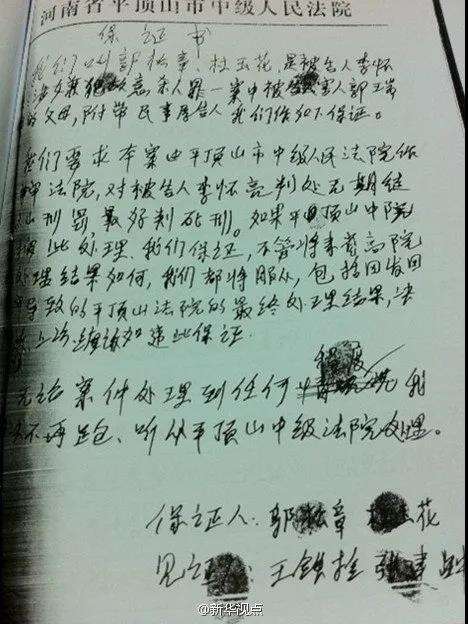 河南省平顶山市中级人民法院
保证书
我们叫郭松章、杜玉花，是被告人李怀
亮故意杀人罪一案中被害人郭
的父母，附带民事原告人我们作如下保证。
我们要求本案由平顶山市中级人民法院作
法院，对被告人李怀亮判处无期徒
刑，最好判死刑。如果平顶山中院
此处理，我们保证，不管将来省高院
处理结果如何，我们都将服从，包括因发回
导致的平顶山法院的最终处理结果，决
上访
此保证
无论案件处理到任何程度 我
不再 听从平顶山中级法院处理。
保证人：郭松章 花
见证 王铁拴 张建
@新华视点